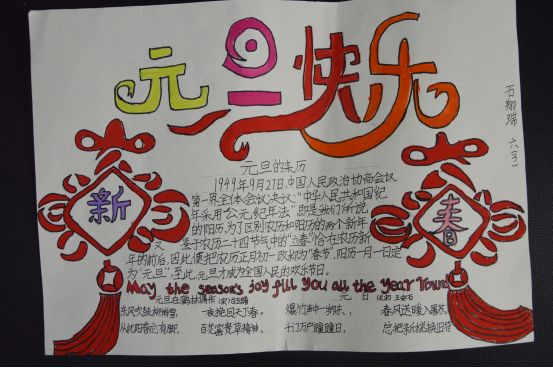 元旦快乐
石翔瑞 六(三)
新
春
元旦的来历
1949年9月27日,中国人民政治协商会议
第一界全体会议决议:“中华人民共和国纪
年采用公元纪年法”,即是我们所说
的阳历,为了区别农历和阳历的两个新年
又 鉴于农历二十四节气中的“立春”恰在农历新
年的前后,因此便把农历正月初一改称为“春节”,阳历一月一日定
为“元旦”,至此,元旦才成为全国人民的欢乐节日。
May the season's joy fill you all the year round
元旦 王安石
一夜挽回天下春,
从此阳春
百
爆竹声中一岁除,
春风送暖入屠苏,
千门万户曈曈日,
总把新桃换旧符